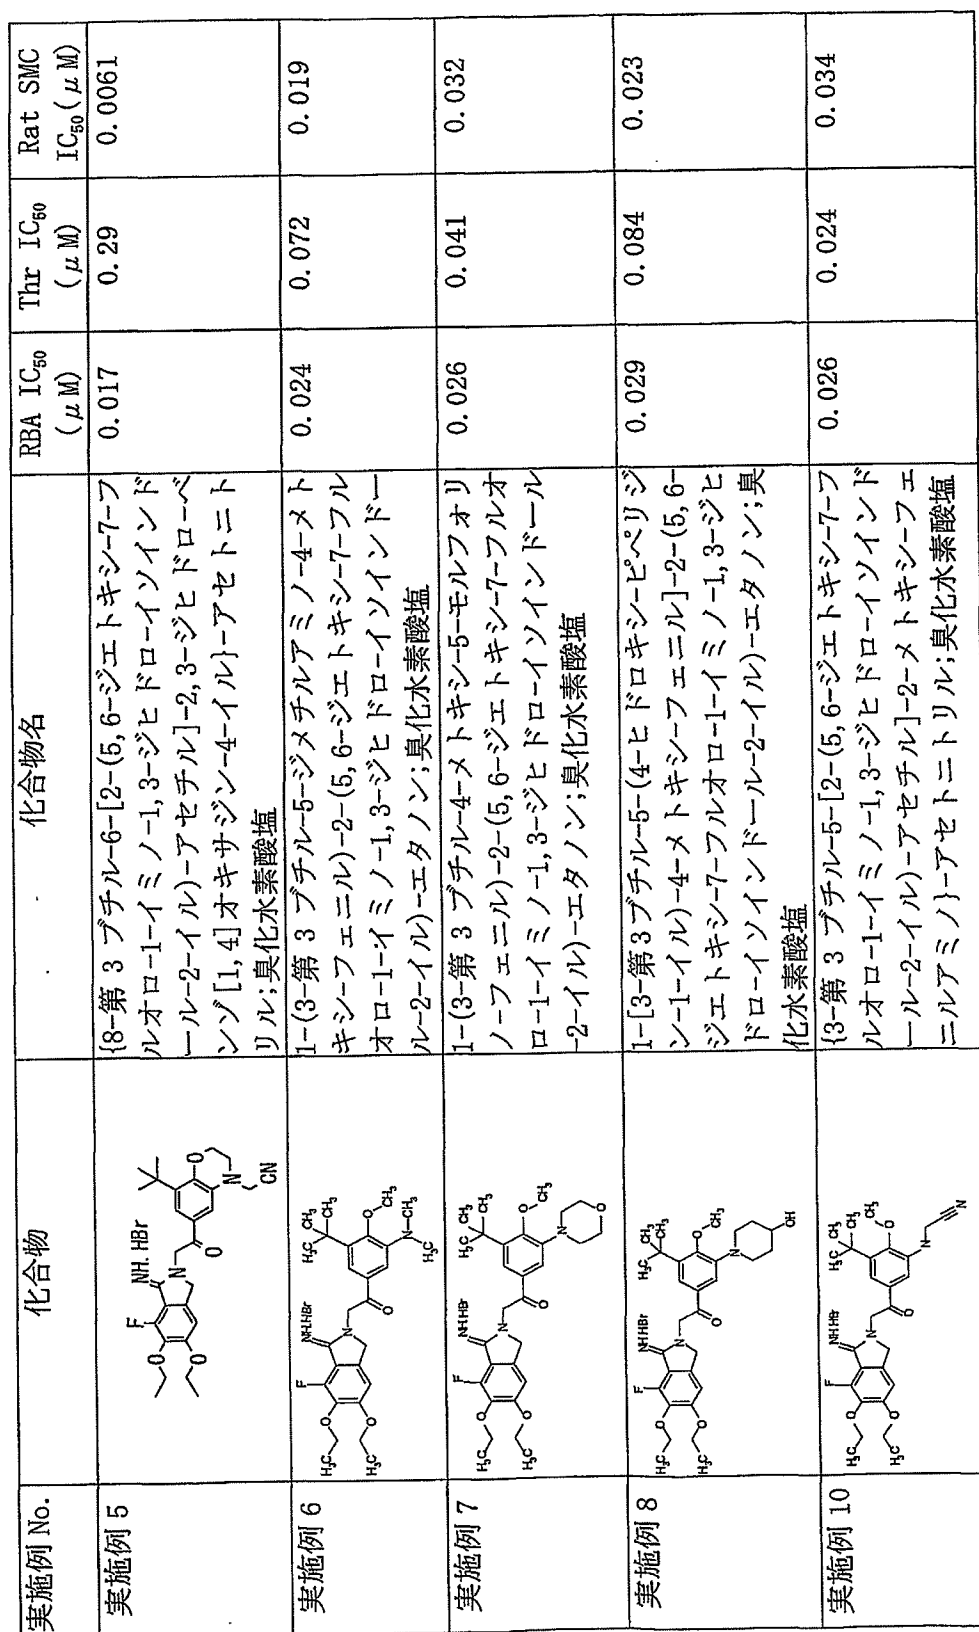 実施例 No.
化合物
化合物名
RBA IC50
(μM)
Thr IC50
(μM)
Rat SMC
IC50(μM)
実施例 5
NH.HBr
F
O
O
N
O
O
N
CN
{8-第 3 ブチル-6-[2-(5,6-ジエトキシ-7-フ
ルオロ-1-イミノ-1,3-ジヒドロ-イソインド
ール-2-イル)-アセチル]-2,3-ジヒドロ-ベ
ンゾ[1,4]オキサジン-4-イル}-アセトニト
リル;臭化水素酸塩
0.017
0.29
0.0061
実施例 6
H₃C
CH₃
CH₃
O
CH₃
N
CH₃
H₃C
NH.HBr
F
N
O
O
O
H₃C
H₃C
1-(3-第 3 ブチル-5-ジメチルアミノ-4-メト
キシ-フェニル)-2-(5,6-ジエトキシ-7-フル
オロ-1-イミノ-1,3-ジヒドロ-イソインドー
ル-2-イル)-エタノン;臭化水素酸塩
0.024
0.072
0.019
実施例 7
H₃C
CH₃
CH₃
O
CH₃
N
O
NH.HBr
F
N
O
O
O
H₃C
H₃C
1-(3-第 3 ブチル-4-メトキシ-5-モルフォリ
ノ-フェニル)-2-(5,6-ジエトキシ-7-フルオ
ロ-1-イミノ-1,3-ジヒドロ-イソインドール
-2-イル)-エタノン;臭化水素酸塩
0.026
0.041
0.032
実施例 8
H₃C
CH₃
CH₃
O
CH₃
N
OH
NH.HBr
F
N
O
O
O
H₃C
H₃C
1-[3-第3ブチル-5-(4-ヒドロキシ-ピペリジ
ン-1-イル)-4-メトキシ-フェニル]-2-(5,6-
ジエトキシ-7-フルオロ-1-イミノ-1,3-ジヒ
ドロ-イソインドール-2-イル)-エタノン;臭
化水素酸塩
0.029
0.084
0.023
実施例 10
H₃C
CH₃
CH₃
O
CH₃
N
N
NH.HBr
F
N
O
O
O
H₃C
H₃C
{3-第 3 ブチル-5-[2-(5,6-ジエトキシ-7-フ
ルオロ-1-イミノ-1,3-ジヒドロ-イソインド
ール-2-イル)-アセチル]-2-メトキシ-フェ
ニルアミノ}-アセトニトリル;臭化水素酸塩
0.026
0.024
0.034